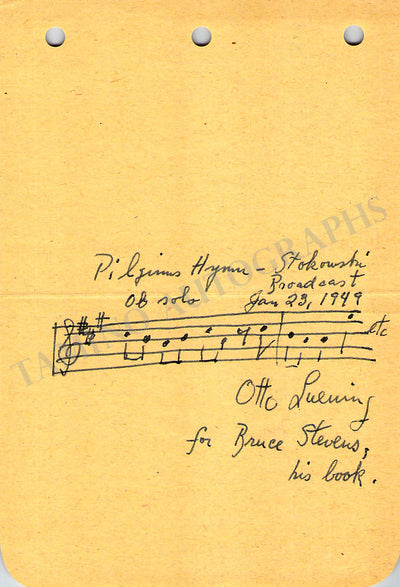 Pilgrims Hymn - Stokowski
Broadcast
Ob solo Jan 23, 1949
etc
Otto Luening
for Bruce Stevens,
his book.
TAMINO AUTOGRAPHS